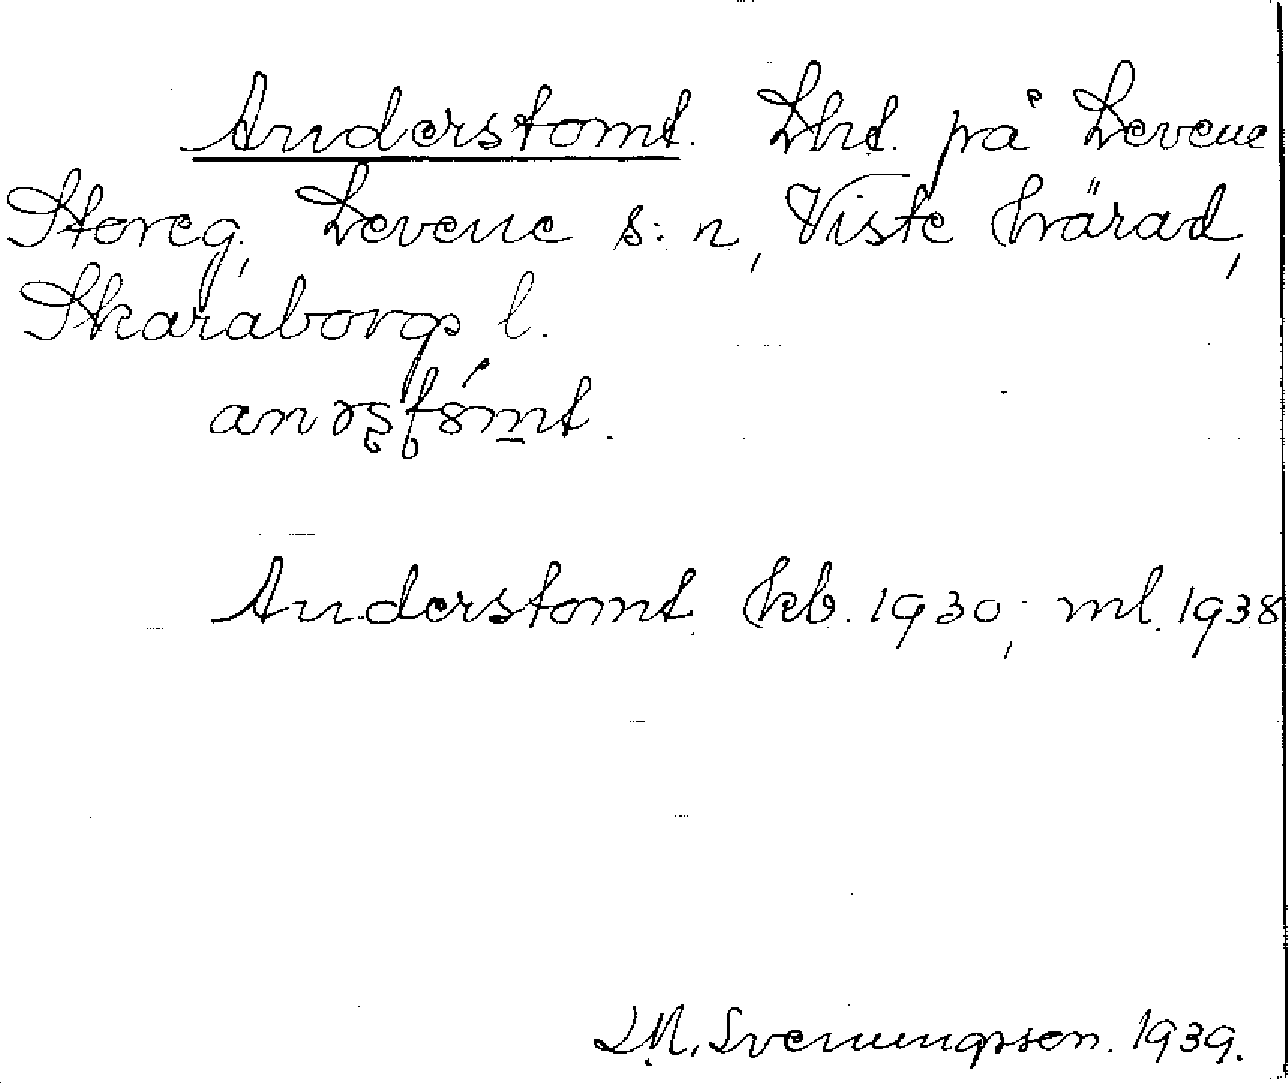 Anderstomt. Lht. på Levene
Storeg., Levene s:n, Viste härad,
Skaraborgs l.
Anderstomt kb. 1930; ml. 1938
D.N. Svenungsson. 1939.